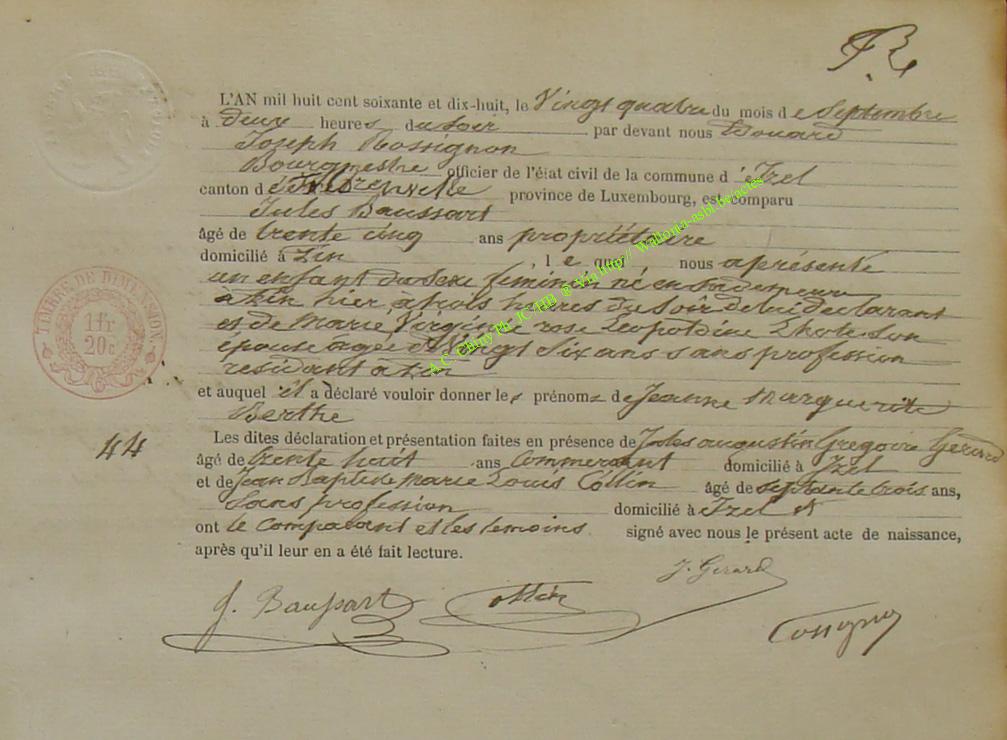 F. Re
L'AN mil huit cent soixante et dix-huit, le Vingt quatre du mois d e Septembre
à deux heures du soir par devant nous Edouard
Joseph Rossignon
Bourgmestre officier de l'état civil de la commune d' Izel
canton d province de Luxembourg, est comparu
Jules Baussart
âgé de trente cinq ans propriétaire
domicilié à Izin , l e quel nous a présenté
un enfant du sexe féminin né en sa demeure
a Izin hier a trois heures du soir de lui déclarant
et de Marie Virginie rose Léopoldine son
épouse agée de Vingt Six ans sans profession
residant a Izin
et auquel il a déclaré vouloir donner les prénoms de Jeanne Marguerite
Berthe
44
Les dites déclaration et présentation faites en présence de Jules augustin Gregoire Gérard
âgé de trente huit ans Commercant domicilié à Izel
et de Jean Baptiste Marie Louis Collin âgé de septante trois ans,
Sans profession domicilié à Izel &
ont le Comparant et les temoins signé avec nous le présent acte de naissance,
après qu'il leur en a été fait lecture.
J. Gerard
J. Baussart Collin
Rossignon
TIMBRE DE DIMENSION.
1 fr
20 c
A.C. Chiny Ph JC-HB ® Via http// Wallonia-asbl.be/actes